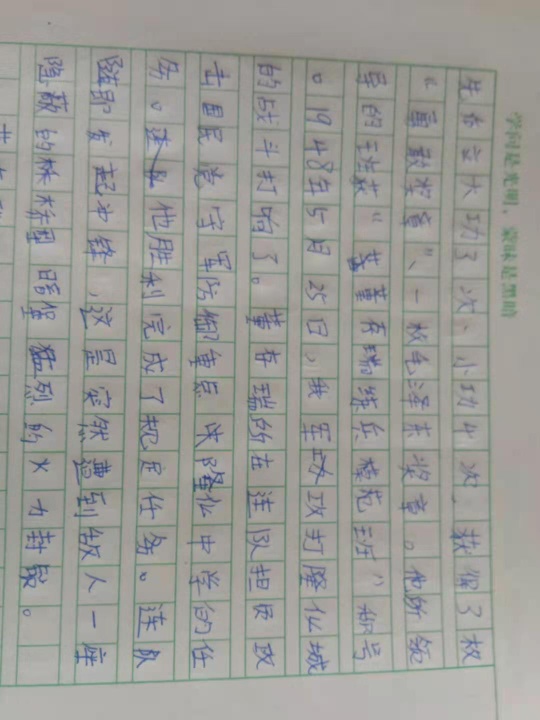 学问是光明，蒙昧是黑暗
先各立大功3次、小功4次，获得了枚
“勇敢奖章”、一枚毛泽东奖章。他所领
导的班获“董存瑞练兵模范班”称号
。1948年5月25日，我军攻打隆化城
的战斗打响了。董存瑞所在连队担负攻
击国民党守军防御重点 隆化中学的任
务。他胜利完成了规定任务。连队
随即发起冲锋，这是突然遭到敌人一座
隐蔽的 暗堡猛烈的火力封锁。